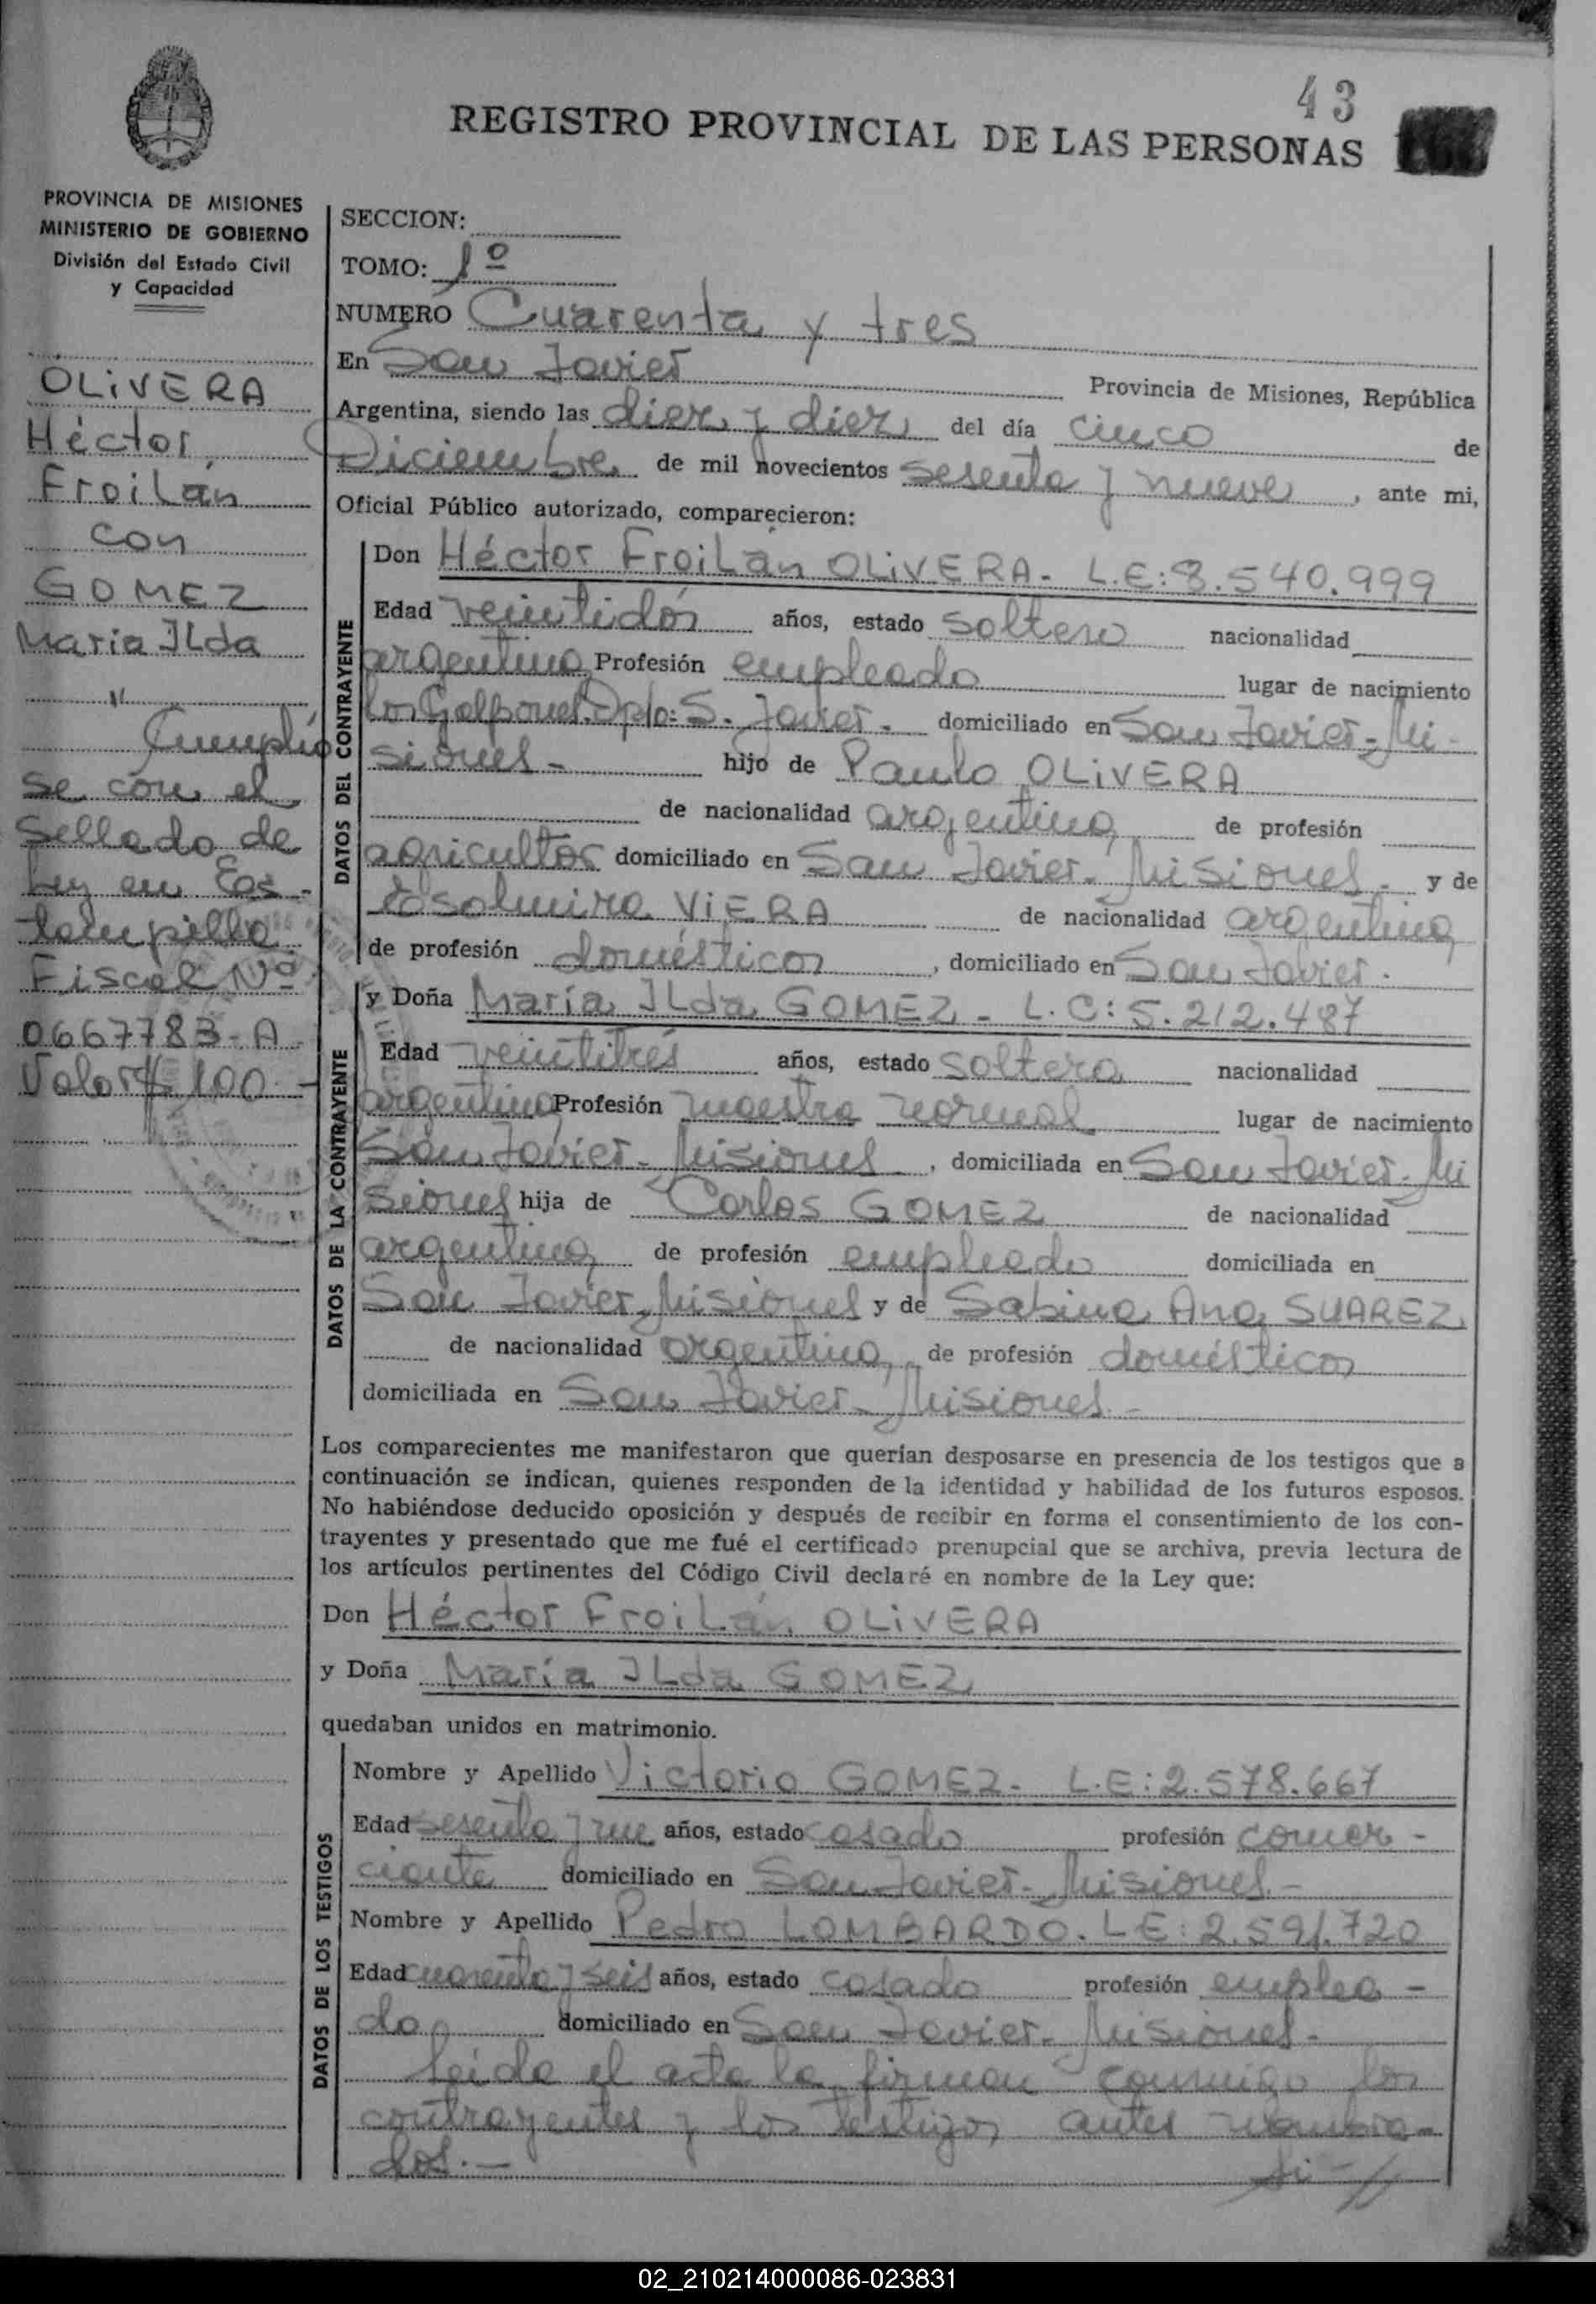 43
REGISTRO PROVINCIAL DE LAS PERSONAS
PROVINCIA DE MISIONES
MINISTERIO DE GOBIERNO
División del Estado Civil
y Capacidad
OLIVERA
Héctor
Froilán
con
GOMEZ
Maria Ilda
"
Cumplió
se con el
sellado de
Ley en Es-
tampilla
Fiscal Nº
0667783-A
Valor $ 100.-
SECCION:
TOMO: 1º
NUMERO Cuarenta y tres
En San Javier Provincia de Misiones, República
Argentina, siendo las diez y diez del día cinco de
Diciembre de mil novecientos sesenta y nueve, ante mi,
Oficial Público autorizado, comparecieron:
DATOS DEL CONTRAYENTE
Don Héctor Froilán OLIVERA- L.E: 8.540.999
Edad veintidós años, estado soltero nacionalidad
argentina Profesión empleado lugar de nacimiento
Los Galpones. Dpto: S. Javier.- domiciliado en San Javier-Mi-
siones- hijo de Paulo OLIVERA
de nacionalidad argentina de profesión
agricultor domiciliado en San Javier-Misiones.- y de
VIERA de nacionalidad argentina,
de profesión domésticos, domiciliado en San Javier.
DATOS DE LA CONTRAYENTE
y Doña María Ilda GOMEZ - L.C: 5.212.487
Edad veintitrés años, estado soltera nacionalidad
argentina Profesión maestra normal lugar de nacimiento
San Javier-Misiones, domiciliada en San Javier-Mi
siones hija de Carlos GOMEZ de nacionalidad
argentina, de profesión empleado domiciliada en
San Javier, Misiones y de Sabina Ana SUAREZ
de nacionalidad argentina, de profesión domésticos
domiciliada en San Javier-Misiones.-
Los comparecientes me manifestaron que querían desposarse en presencia de los testigos que a
continuación se indican, quienes responden de la identidad y habilidad de los futuros esposos.
No habiéndose deducido oposición y después de recibir en forma el consentimiento de los con-
trayentes y presentado que me fué el certificado prenupcial que se archiva, previa lectura de
los artículos pertinentes del Código Civil declaré en nombre de la Ley que:
Don Héctor Froilán OLIVERA
y Doña María Ilda GOMEZ
quedaban unidos en matrimonio.
DATOS DE LOS TESTIGOS
Nombre y Apellido Victorio GOMEZ- L.E: 2.578.667
Edad sesenta y años, estado casado profesión comer-
ciante domiciliado en San Javier-Misiones.-
Nombre y Apellido Pedro LOMBARDO. L E: 2.591.720
Edad cuarenta y seis años, estado casado profesión emplea-
do domiciliado en San Javier-Misiones.-
Leida el acta la firman conmigo los
contrayentes y los testigos antes nombra-
dos.-
02_210214000086-023831